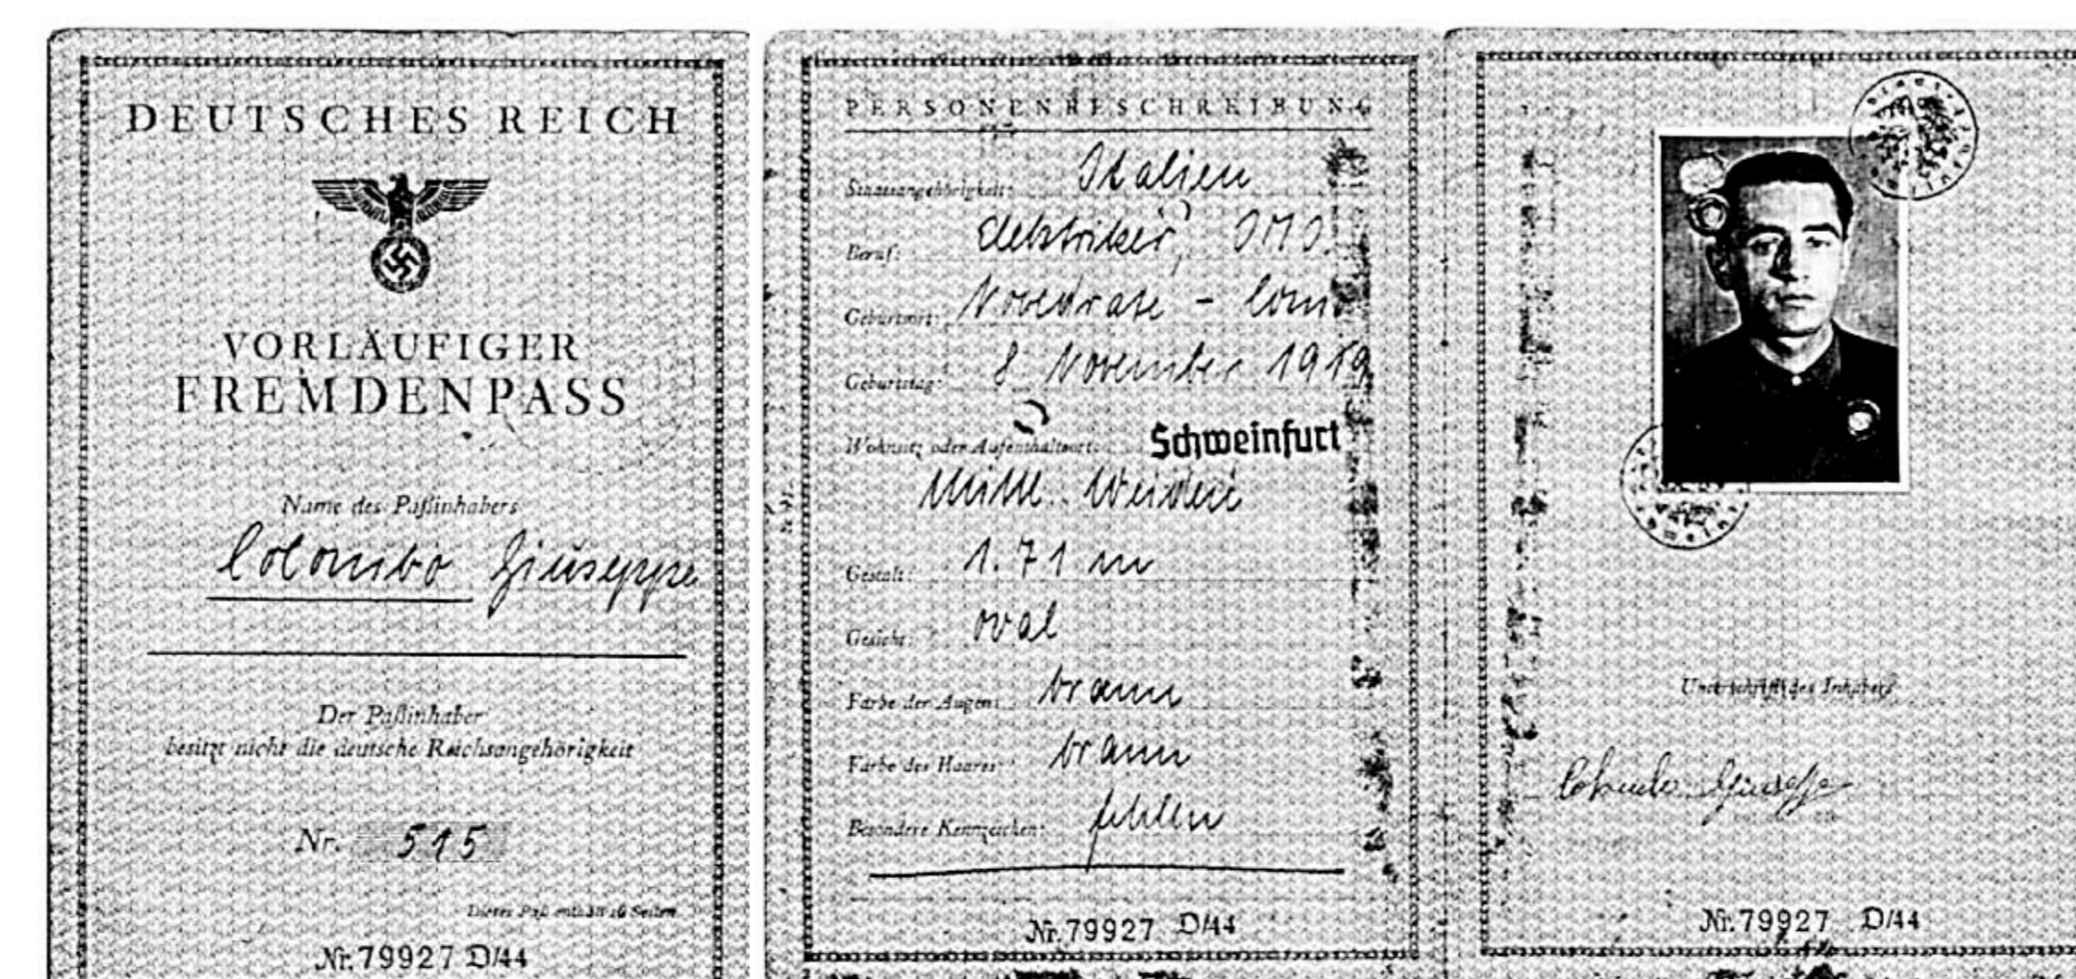 DEUTSCHES REICH
VORLÄUFIGER
FREMDENPASS
Name des Paßinhabers
Colombo Giuseppe
Der Paßinhaber
besitzt nicht die deutsche Reichsangehörigkeit
Nr. 515
Dieser Paß enthält 16 Seiten
Nr. 79927 D/44
PERSONENBESCHREIBUNG
Staatsangehörigkeit: Italien
Beruf: Elektriker,
Geburtsort: Novedrate - Como
Geburtstag: 8. November 1919
Wohnsitz oder Aufenthaltsort: Schweinfurt
Gestalt: 1.71 m
Gesicht: oval
Farbe der Augen: braun
Farbe des Haares: braun
Besondere Kennzeichen: fehlen
Nr. 79927 D/44
Unterschrift des Inhabers
Colombo Giuseppe
Nr. 79927 D/44